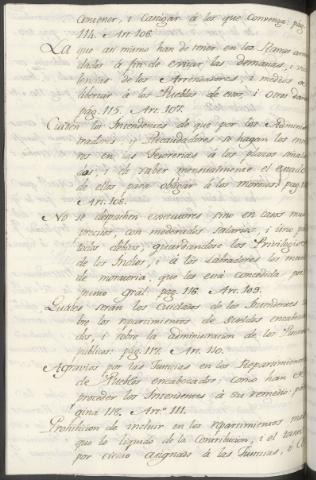 Contener, i Castigar á los que convenga. pag.
114. Art. 106.
La que asi mismo han de tener en los Ramos arren
dados á fin de evitar las demasias, i vio
lencias de los Arrendadores, i medios de
libertar á los Pueblos de esos, i otros daños
pag. 115. Art. 107.
Cuiden los Intendentes de que por los Adminis
tradores, y Recaudadores se hagan los ente
ros en las Tesorerias á los plazos señala
dos; i de saber mensualmente el estado
de ellas para obligar á los morosos pag.
Art. 108.
No se despachen executores sino en casos mui
precisos, con moderados salarios, i
todos debitos, guardandose los Privilegios
de los Indios, i á los Labradores los meses
de moratoria, que les será concedida por
punto gral. pag. 116. Art. 109.
Quales serán los cuidados de los Intendentes so
bre los repartimientos de Pueblos encabeza
dos, i sobre la administracion de los Puestos
publicos. pag. 117. Art. 110.
Agravios por las Justicias en los Repartimientos
de Pueblos encabezados; como han de
proceder los Intendentes á su remedio; pa
gina 118. Art.º 111.
Prohibicion de incluir en los repartimientos mas
que lo liquido de la Contribucion, i el tanto
por ciento asignado á las Justicias, i